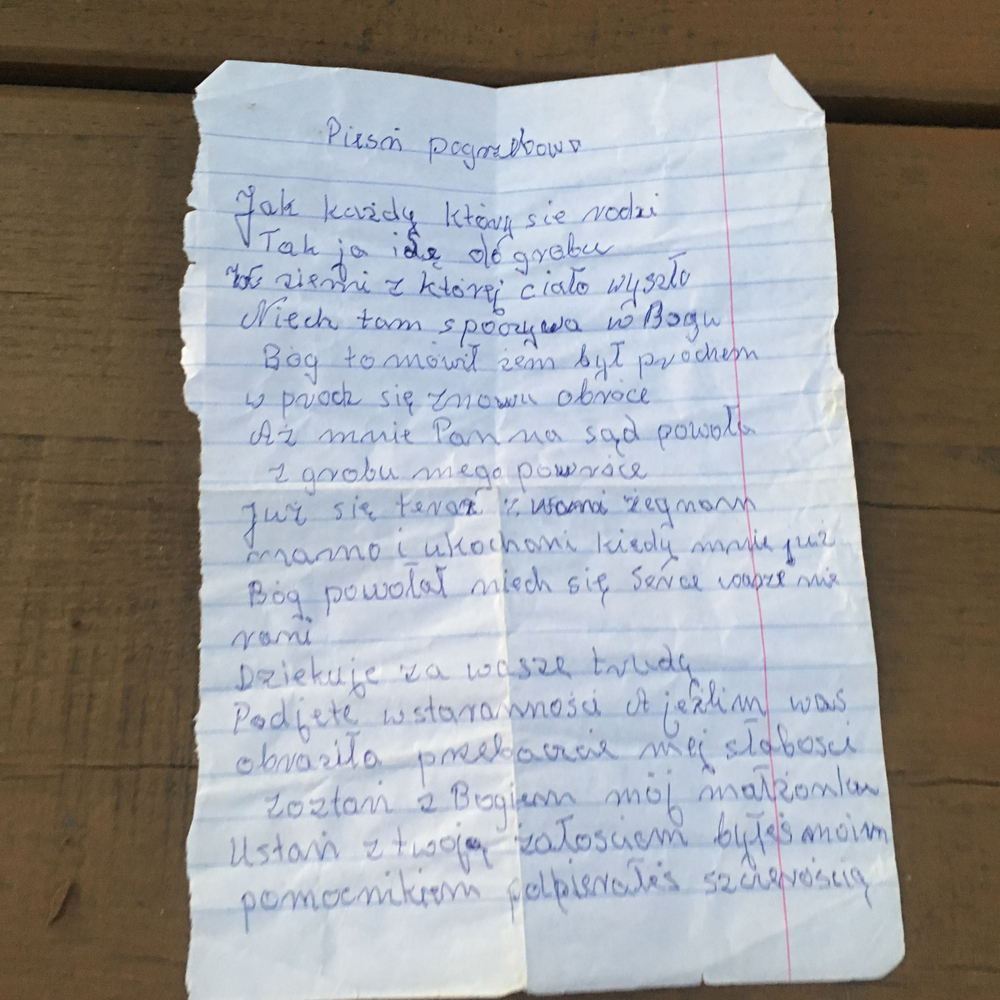 Pieśń pogrzebowa
Jak każdy który sie rodzi
Tak ja idę do grobu
ziemi z której ciało wyszło
Niech tam spoczywa w Bogu
Bóg to mówił żem był prochem
w proch się znowu obróce
Aż mnie Pan na sąd powoła
z grobu mego powróce
Już się teraz z wami żegnam
mamo i ukochani kiedy mnie już
Bóg powołał niech się serce wasze nie
rani
Dziekuje za wasze trudy
Podjęte w staranności A jeźlim was
obraziła przebaczcie mej słabości
zoztań z Bogiem mój małżonku
Ustań z twoją żałościem byłeś moim
pomocnikiem podpierałeś szczerością